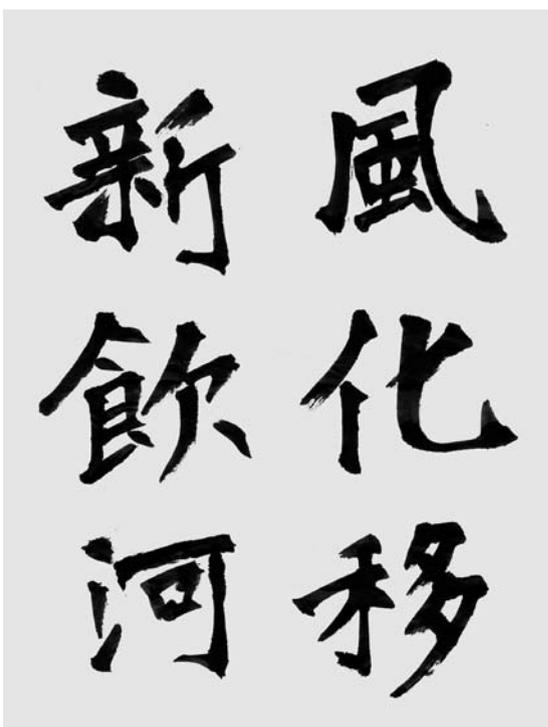 風化移
新飲河